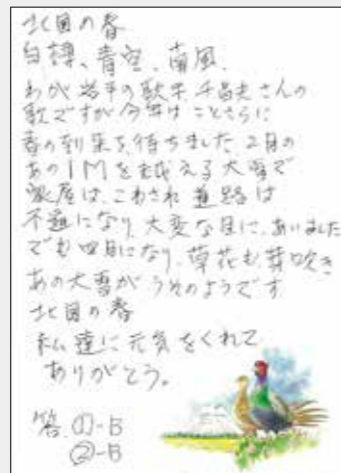 北国の春
白樺、青空、南風、
わが岩手の歌手 千昌夫さんの
歌ですが今年は ことさらに
春の到来を待ちました 2月の
あの1Mを越える大雪で
家屋は、こわされ 道路は
不通になり 大変な目に、あいました
でも四月になり、草花も芽吹き
あの大雪が うそのようです
北国の春
私達に元気をくれて
ありがとう。
答 ①-B
②-B